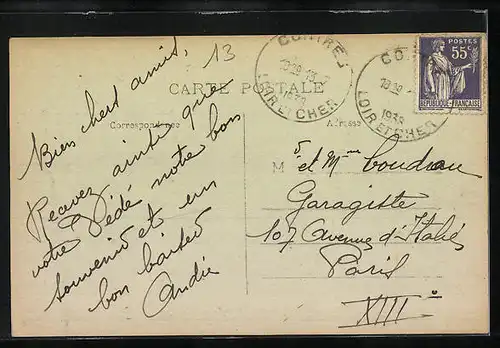 13
CARTE POSTALE
Correspondance
Adresse
Bien chers amis,
Recevez ainsi que
votre Dédé notre bon
souvenir et un
bon baiser
André
CONTRES
1939
LOIR ET CHER
1939
LOIR ET CHER
POSTES
55c
REPUBLIQUE FRANÇAISE
M r et Mme Coudrau
Garagiste
107 Avenue d'Italie
Paris
XIII e